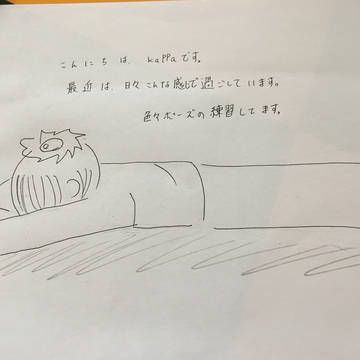 こんにちは、kappaです。
最近は、日々こんな感じで過ごしています。
色々ポーズの練習してます。